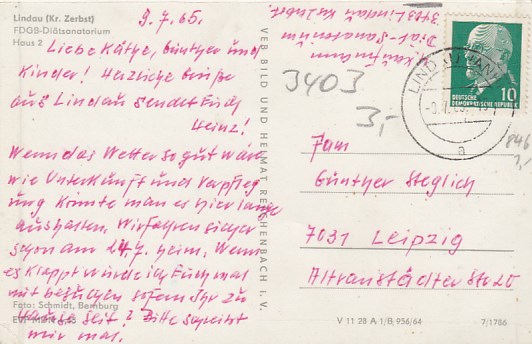 Lindau (Kr. Zerbst)
FDGB-Diätsanatorium
Haus 2
9.7.65.
Liebe Käthe, Günther und
Kinder! Herzliche Grüße
aus Lindau sendet Euch
Heinz!
Wenn das Wetter so gut wär
wie Unterkunft und Verpfleg
ung könnte man es hier lange
aushalten. Wir fahren sicher
schon am 24.7. heim. Wenn
es klappt würde ich Euch mal
mit besuchen sofern Ihr zu
Hause seit? Bitte schreibt
mir mal.
Foto: Schmidt, Bernburg
VEB BILD UND HEIMAT REICHENBACH I. V.
Diät-Sanatorium
3403 Lindau Kr. Zerbst
3403
3,-
LINDAU (ANH)
a
10
DEUTSCHE
DEMOKRATISCHE REPUBLIK
846
Fam
Günther Steglich
7031 Leipzig
Altranstädter Str 20
V 11 28 A 1/B 956/64
7/1786